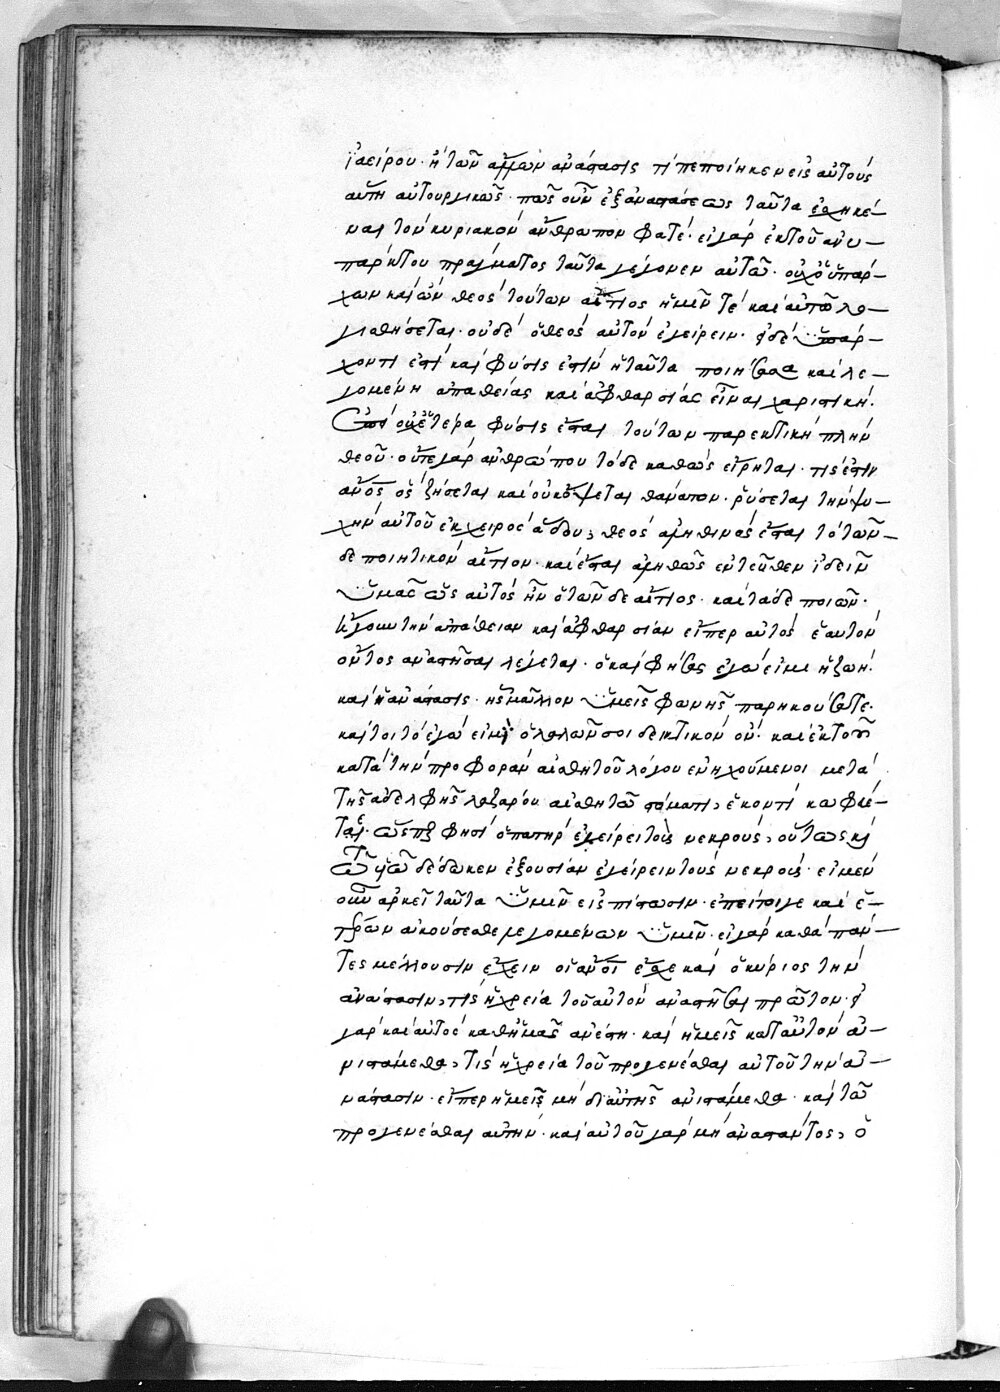 ἰαείρου· ἡ τῶν ἄλλων ἀνάστασις τί πεποίηκεν εἰς αὐτοὺς
αὕτη αὐτουργικῶς· πῶς οὖν ἐξ ἀναστάσεως ταῦτα ἐσχηκέ-
ναι τὸν κυριακὸν ἄνθρωπον φατέ· εἰ γὰρ ἐκ τοῦ ἀνυ-
παρκτου πράγματος ταῦτα γέγονεν αὐτῶ· οὐχ ὁ ὑπάρ-
χων καὶ ὢν θεὸς τούτων αἴτιος ἡμῖν τὲ καὶ αὐτῶ λο-
γισθήσεται· οὐδὲ ὁ θεὸς αὐτὸν ἐγείρειν· εἰ δὲ ὑπάρ-
χοντί ἐστι καὶ φύσις ἐστὶν ἡ ταῦτα ποιήσασα καὶ λε-
γομένη ἀπαθείας καὶ ἀφθαρσίας εἶναι χαριστική·
ἐπεὶ οὐχ ἑτέρα φύσις ἔσται τούτων παρεκτικὴ πλὴν
θεοῦ· οὔτε γὰρ ἀνθρώπου τόδε καθὼς εἴρηται· τίς ἐστιν
ἄνος ὃς ζήσεται καὶ οὐκ ὄψεται θάνατον· ῥύσεται τὴν ψυ-
χὴν αὐτοῦ ἐκ χειρὸς ἅδου, θεὸς ἀληθινὸς ἔσται τὸ τῶν-
δε ποιητικὸν αἴτιον· καὶ ἔσται ἀληθῶς ἐντεῦθεν ἰδεῖν
ὑμᾶς ὡς αὐτὸς ἦν ὁ τῶνδε αἴτιος· καὶ τάδε ποιῶν·
λέγω τὴν ἀπάθειαν καὶ ἀφθαρσίαν εἴπερ αὐτὸς ἑαυτὸν
οὗτος ἀναστῆσαι λέγεται· ὁ καὶ φήσας ἐγώ εἰμι ἡ ζωὴ·
καὶ ἡ ἀνάστασις· ἧς μᾶλλον ὑμεῖς φωνῆς παρηκούσατε·
καί τοι τὸ ἐγώ εἰμὶ ὁ λαλῶν σοι δεικτικὸν ὂν· καὶ ἐκ τοῦ
κατὰ τὴν προφορὰν αἰσθητοῦ λόγου ἐνηχούμενοι μετὰ
τῆς ἀδελφῆς λαζάρου αἰσθητῶ στόματι, ἑκοντὶ κωφεύε-
ται· ὥσπερ φησὶ ὁ πατὴρ ἐγείρει τοὺς νεκροὺς, οὕτως καὶ
τῶ υἱῶ δέδωκεν ἐξουσίαν ἐγείρειν τοὺς νεκροὺς· εἰ μὲν
οὖν ἀρκεῖ ταῦτα ὑμῖν εἰς πίστωσιν· ἐπεί τοιγε καὶ ἑ-
τέρων ἀκούσεσθε λεγομένων ὑμῖν· εἰ γὰρ καθὰ πάν-
τες μέλλουσιν ἔχειν οἱ ἄνοι ἔσχε καὶ ὁ κύριος τὴν
ἀνάστασιν, τίς ἡ χρεία τοῦ αὐτὸν ἀναστῆσαι πρῶτον· εἰ
γὰρ καὶ αὐτὸς καθ' ἡμᾶς ἀνέστη· καὶ ἡμεῖς κατ' αὐτὸν ἀ-
νιστάμεθα, τίς ἡ χρεία τοῦ προγενέσθαι αὐτοῦ τὴν ἀ-
νάστασιν· εἴπερ ἡμεῖς μὴ δι' αὐτῆς ἀνιστάμεθα· καὶ τῶ
προγενέσθαι αὐτὴν· καὶ αὐτοῦ γὰρ μὴ ἀναστάντος, ὁ